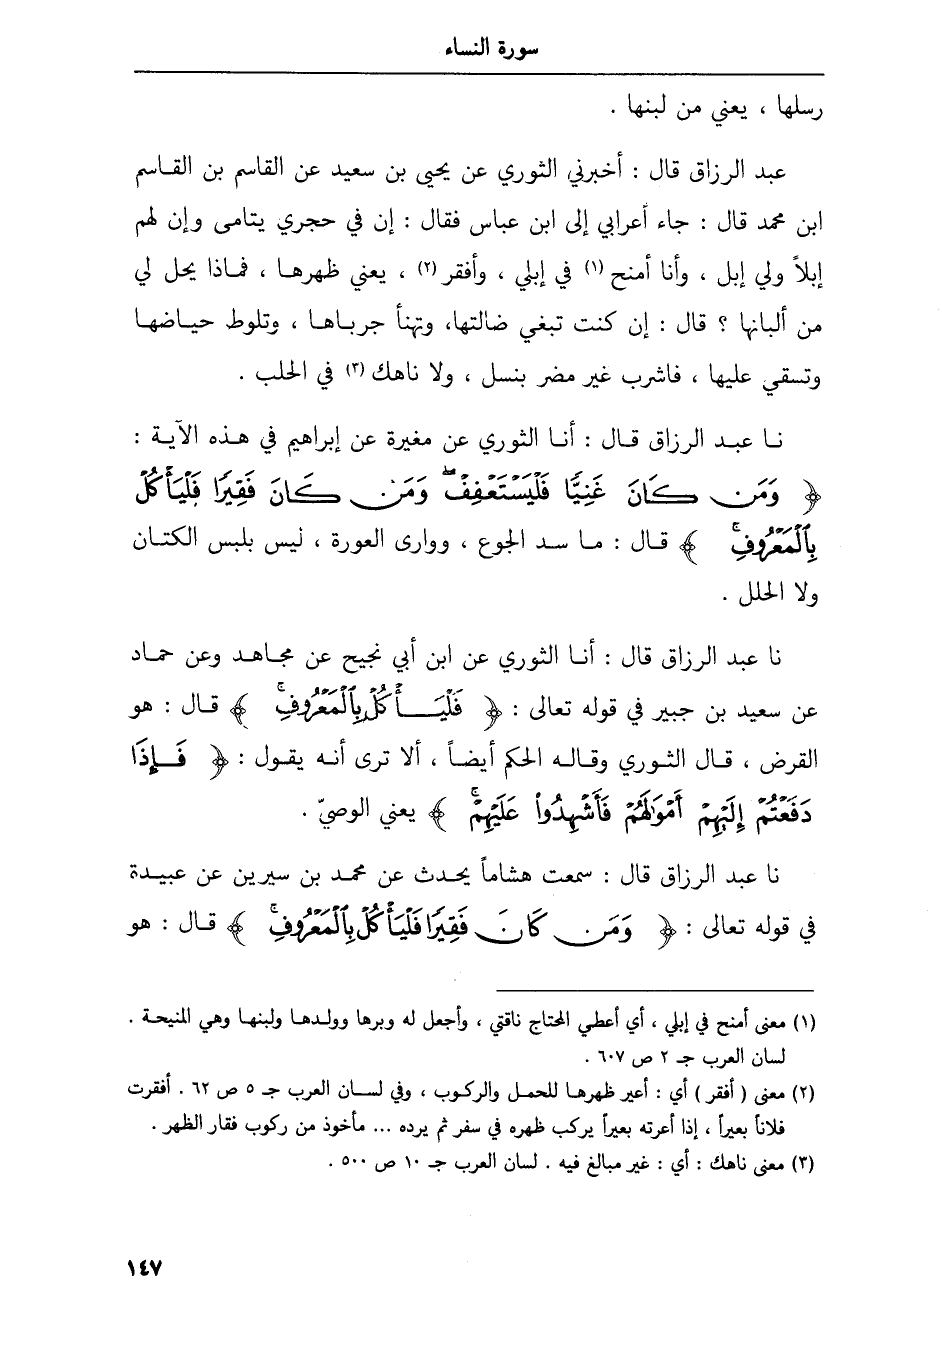 سورة النساء
رسلها ، يعني من لبنها .
عبد الرزاق قال : أخبرني الثوري عن يحيى بن سعيد عن القاسم بن القاسم
ابن محمد قال : جاء أعرابي إلى ابن عباس فقال : إن في حجري يتامى وإن لهم
إبلاً ولي إبل ، وأنا أمنح (١) في إبلي ، وأفقر (٢) ، يعني ظهرها ، فماذا يحل لي
من ألبانها ؟ قال : إن كنت تبغي ضالتها، وتهنأ جرباها ، وتلوط حياضها
وتسقي عليها ، فاشرب غير مضر بنسل ، ولا ناهك (٣) في الحلب .
نا عبد الرزاق قال : أنا الثوري عن مغيرة عن إبراهيم في هذه الآية :
﴿ وَمَن كَانَ غَنِيًّا فَلْيَسْتَعْفِفْ ۖ وَمَن كَانَ فَقِيرًا فَلْيَأْكُلْ
بِالْمَعْرُوفِ ۚ ﴾ قال : ما سد الجوع ، ووارى العورة ، ليس بلبس الكتان
ولا الحلل .
نا عبد الرزاق قال : أنا الثوري عن ابن أبي نجيح عن مجاهد وعن حماد
عن سعيد بن جبير في قوله تعالى : ﴿ فَلْيَأْكُلْ بِالْمَعْرُوفِ ۚ ﴾ قال : هو
القرض ، قال الثوري وقاله الحكم أيضاً ، ألا ترى أنه يقول : ﴿ فَإِذَا
دَفَعْتُمْ إِلَيْهِمْ أَمْوَالَهُمْ فَأَشْهِدُوا عَلَيْهِمْ ۚ ﴾ يعني الوصيّ .
نا عبد الرزاق قال : سمعت هشاماً يحدث عن محمد بن سيرين عن عبيدة
في قوله تعالى : ﴿ وَمَن كَانَ فَقِيرًا فَلْيَأْكُلْ بِالْمَعْرُوفِ ۚ ﴾ قال : هو
(١) معنى أمنح في إبلي ، أي أعطي المحتاج ناقتي ، وأجعل له وبرها وولدها ولبنها وهي المنيحة .
لسان العرب جـ ٢ ص ٦٠٧ .
(٢) معنى ( أفقر ) أي : أعير ظهرها للحمل والركوب ، وفي لسان العرب جـ ٥ ص ٦٢ . أفقرت
فلاناً بعيراً ، إذا أعرته بعيراً يركب ظهره في سفر ثم يرده ... مأخوذ من ركوب فقار الظهر .
(٣) معنى ناهك : أي : غير مبالغ فيه . لسان العرب جـ ١٠ ص ٥٠٠ .
١٤٧